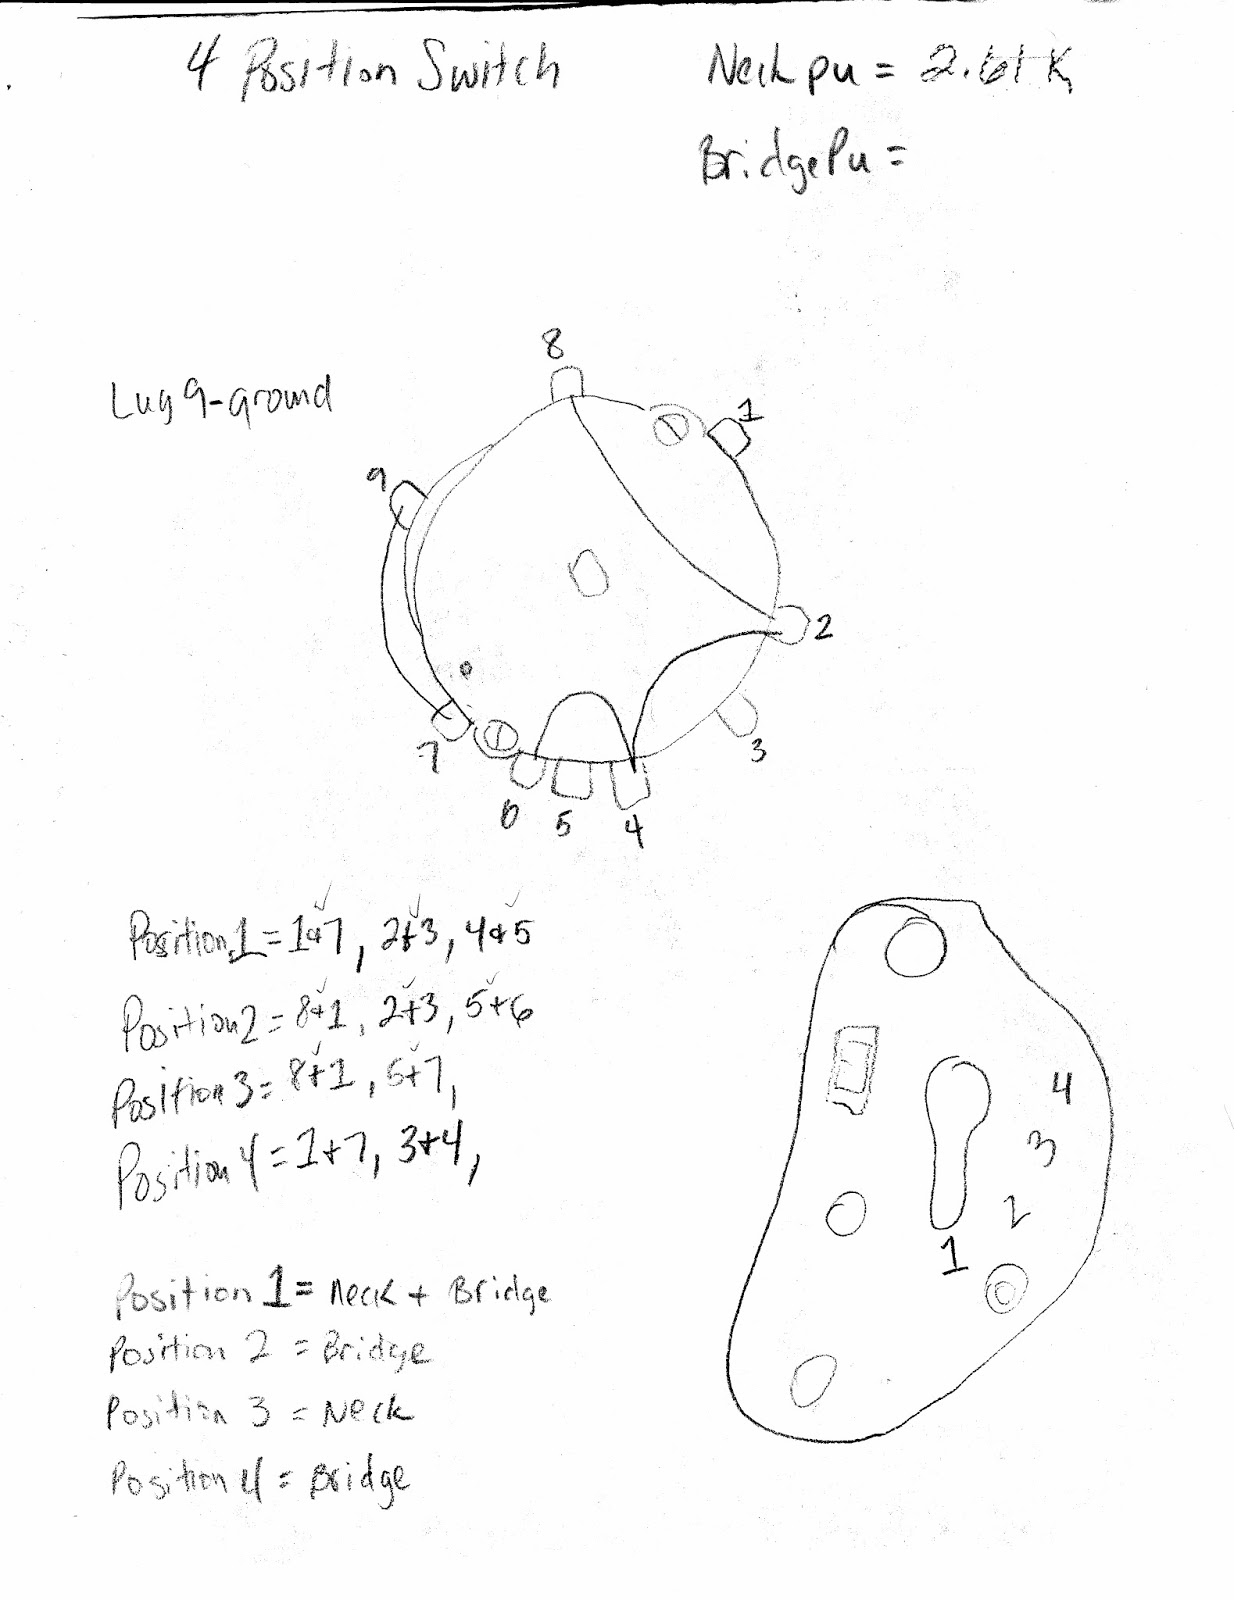 4 Position Switch
Neck pu = 2.61 K
Bridge Pu =
Lug 9-ground
8
1
9
2
3
7
6
5
4
Position 1 = 1+7, 2+3, 4+5
Position 2 = 8+1, 2+3, 5+6
Position 3 = 8+1, 5+7,
Position 4 = 1+7, 3+4,
4
3
2
1
Position 1 = Neck + Bridge
Position 2 = Bridge
Position 3 = Neck
Position 4 = Bridge